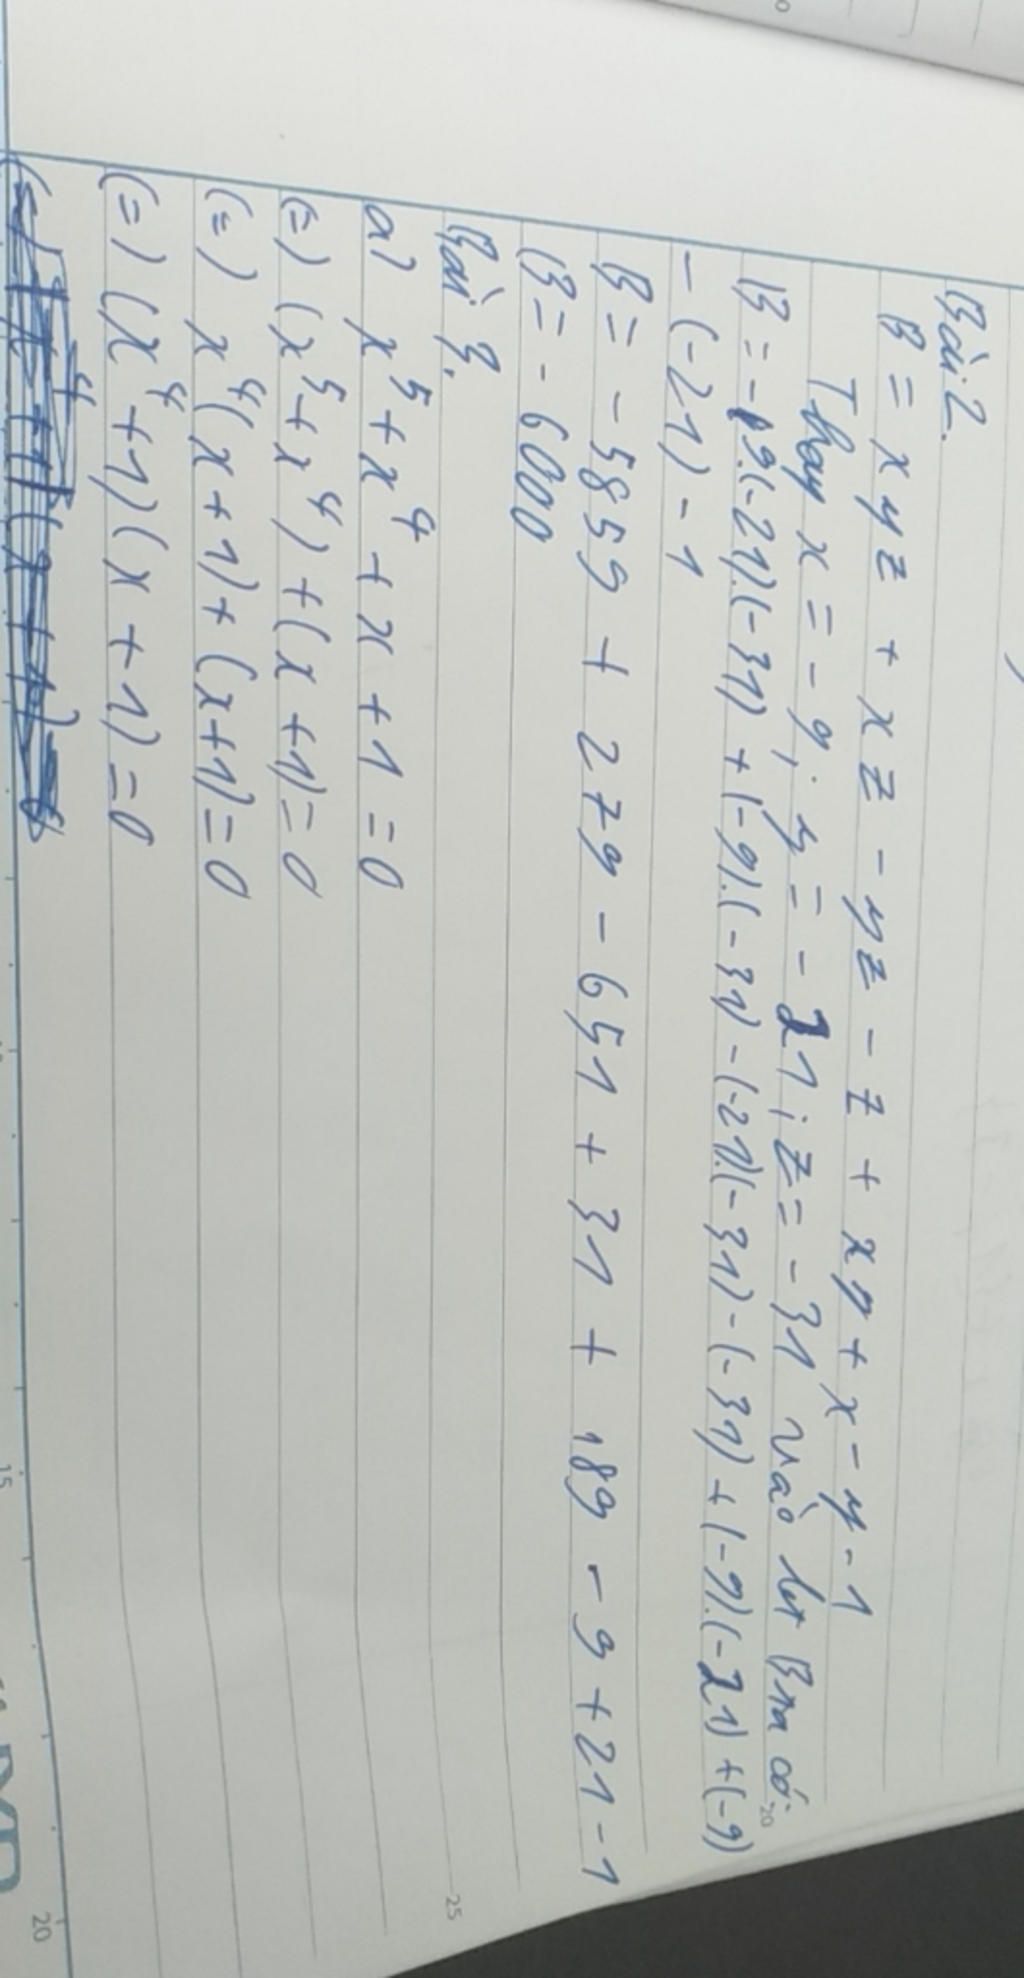 Bài 2.
B = xyz + xz - yz - z + xy + x - y - 1
Thay x = - 9; y = - 21; z = - 31 vào bt B ta có:
B = - 9.(-21).(-31) + (-9).(-31) - (-21).(-31) - (-31) + (-9).(-21) + (-9)
- (-21) - 1
B = - 5859 + 279 - 651 + 31 + 189 - 9 + 21 - 1
B = - 6000
Bài 3.
a) x⁵ + x⁴ + x + 1 = 0
(=) (x⁵ + x⁴) + (x + 1) = 0
(=) x⁴(x + 1) + (x+1) = 0
(=) (x⁴ + 1)(x + 1) = 0
15
20
25
20